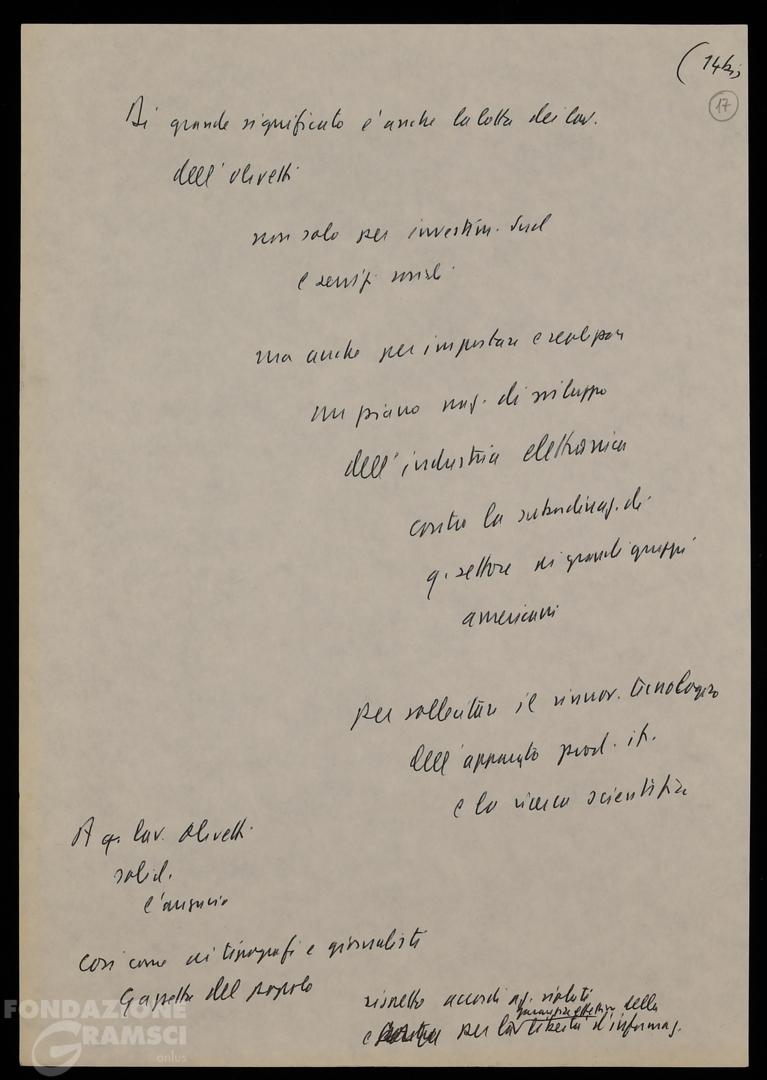 (14bis
17
Di grande significato è anche la lotta dei lav.
dell'Olivetti
non solo per investim. Sud
e servizi sociali
ma anche per impostare e realizzare
un piano naz. di sviluppo
dell'industria elettronica
contro la subordinaz. di
q. settore ai grandi gruppi
americani
per sollecitare il rinnov. tecnologico
dell'apparato prod. it.
e la ricerca scientifica
A q. lav. Olivetti
solid.
l'augurio
così come ai tipografi e giornalisti
Gazzetta del popolo
rispetto accordi az. violati
garanzie effettive della
e per la libertà d'informaz.
FONDAZIONE
GRAMSCI
onlus